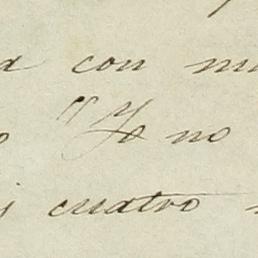 a con mi
o "Yo no
i cuatro